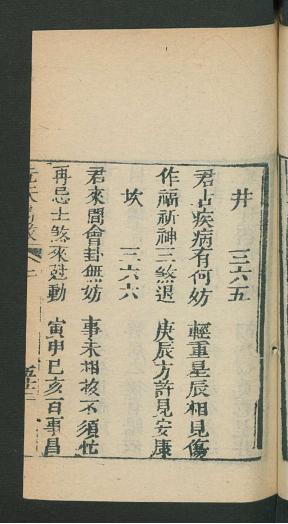 井 三六五
君占疾病有何妨 輕重星辰相見傷
作福祈神三煞退 庚辰方許見安康
坎 三六六
君來問會卦無妨 事未相挨不須忙
再忌土煞來尅動 寅申巳亥百事昌